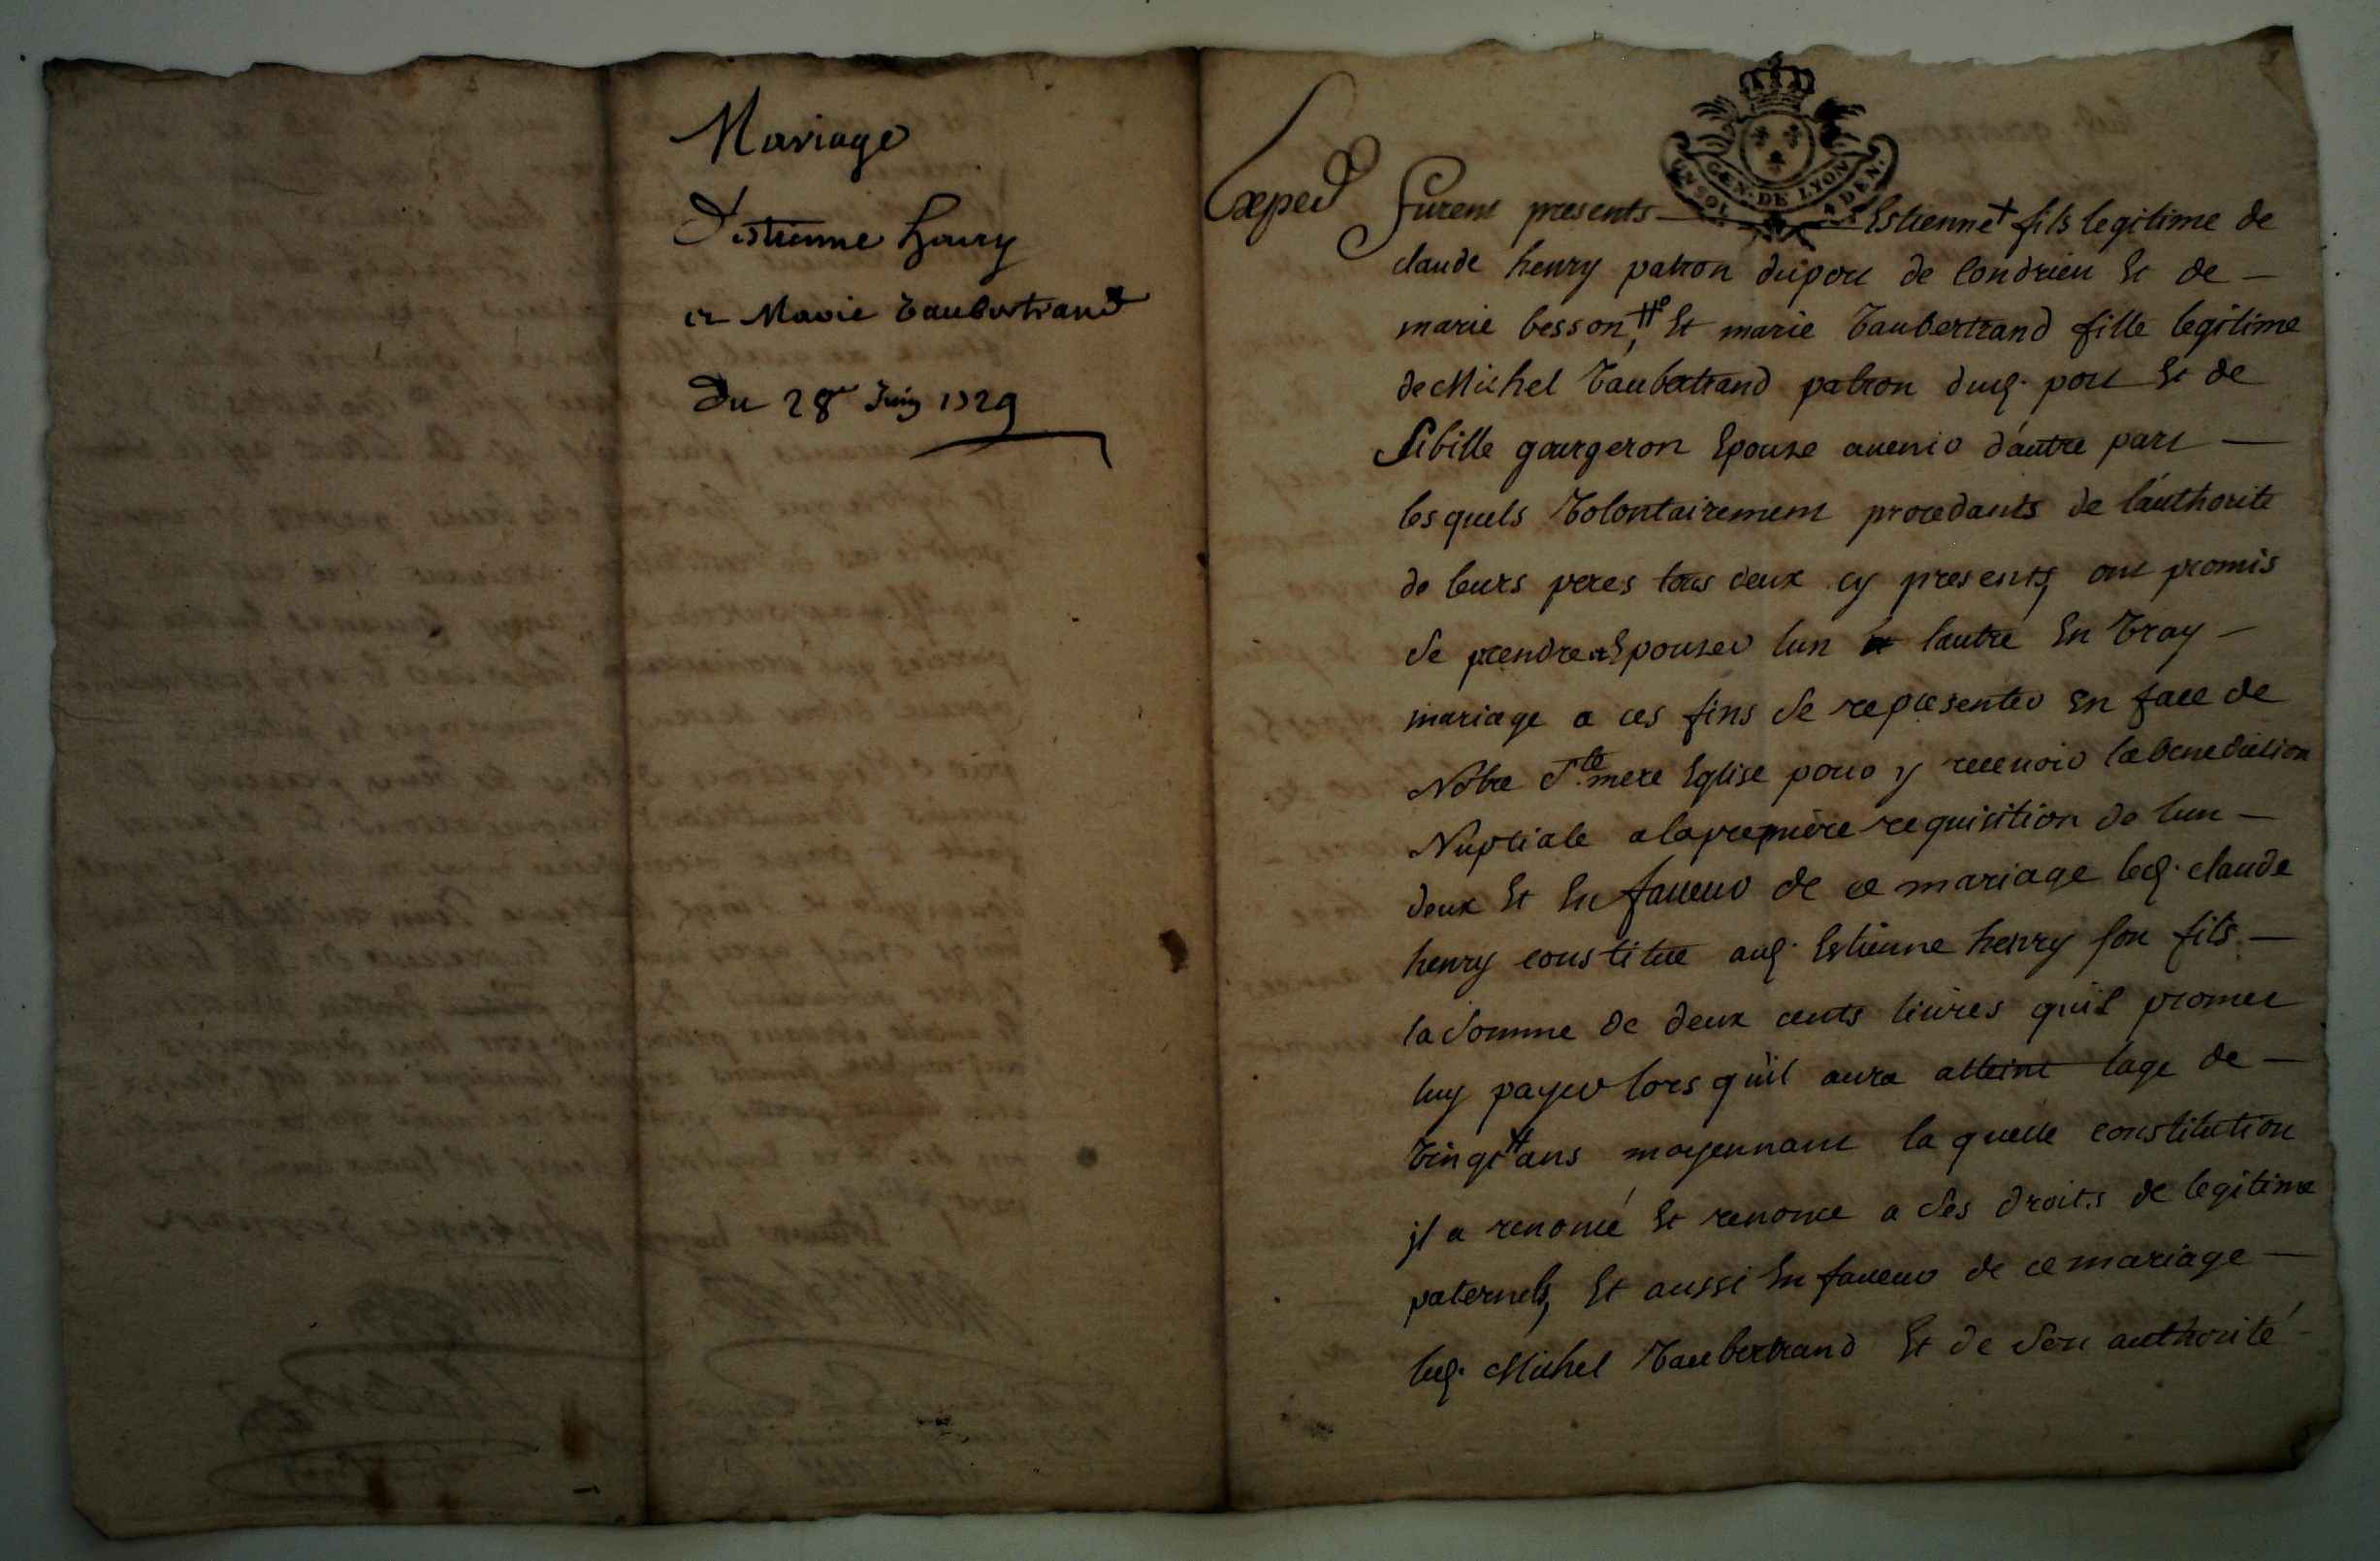 Mariage
D'estienne henry
et Marie Vaubertrand
Du 28e Juin 1729
Exped
GEN. DE LYON
UN SOL 4 DEN.
furent presents Estienne + fils legitime de
claude henry patron duport de Condrieu Et de
marie besson, # Et marie Vaubertrand fille legitime
de Michel Vaubertrand patron dud. port Et de
Sibille gourgeron Epouse avenir d'autre part
lesquels Volontairement procedants de l'authorite
de leurs peres tous deux cy presents, ont promis
se prendre et Epouser lun lautre En Vray
mariage a ces fins se representer En face de
Notre Ste mere Eglise pour y recevoir la benediction
Nuptiale a la premiere requisition de lun
deux Et En faveur de ce mariage led. claude
henry constitue aud. Estienne henry son fils
la somme de deux cents livres quil promet
luy payer lors quil aura atteint lage de
Vingt # ans moyennant la quelle constitution
jl a renoncé Et renonce a ses droits de legitime
paternels, Et aussi En faveur de ce mariage
led. Michel Vaubertrand Et de son authorité